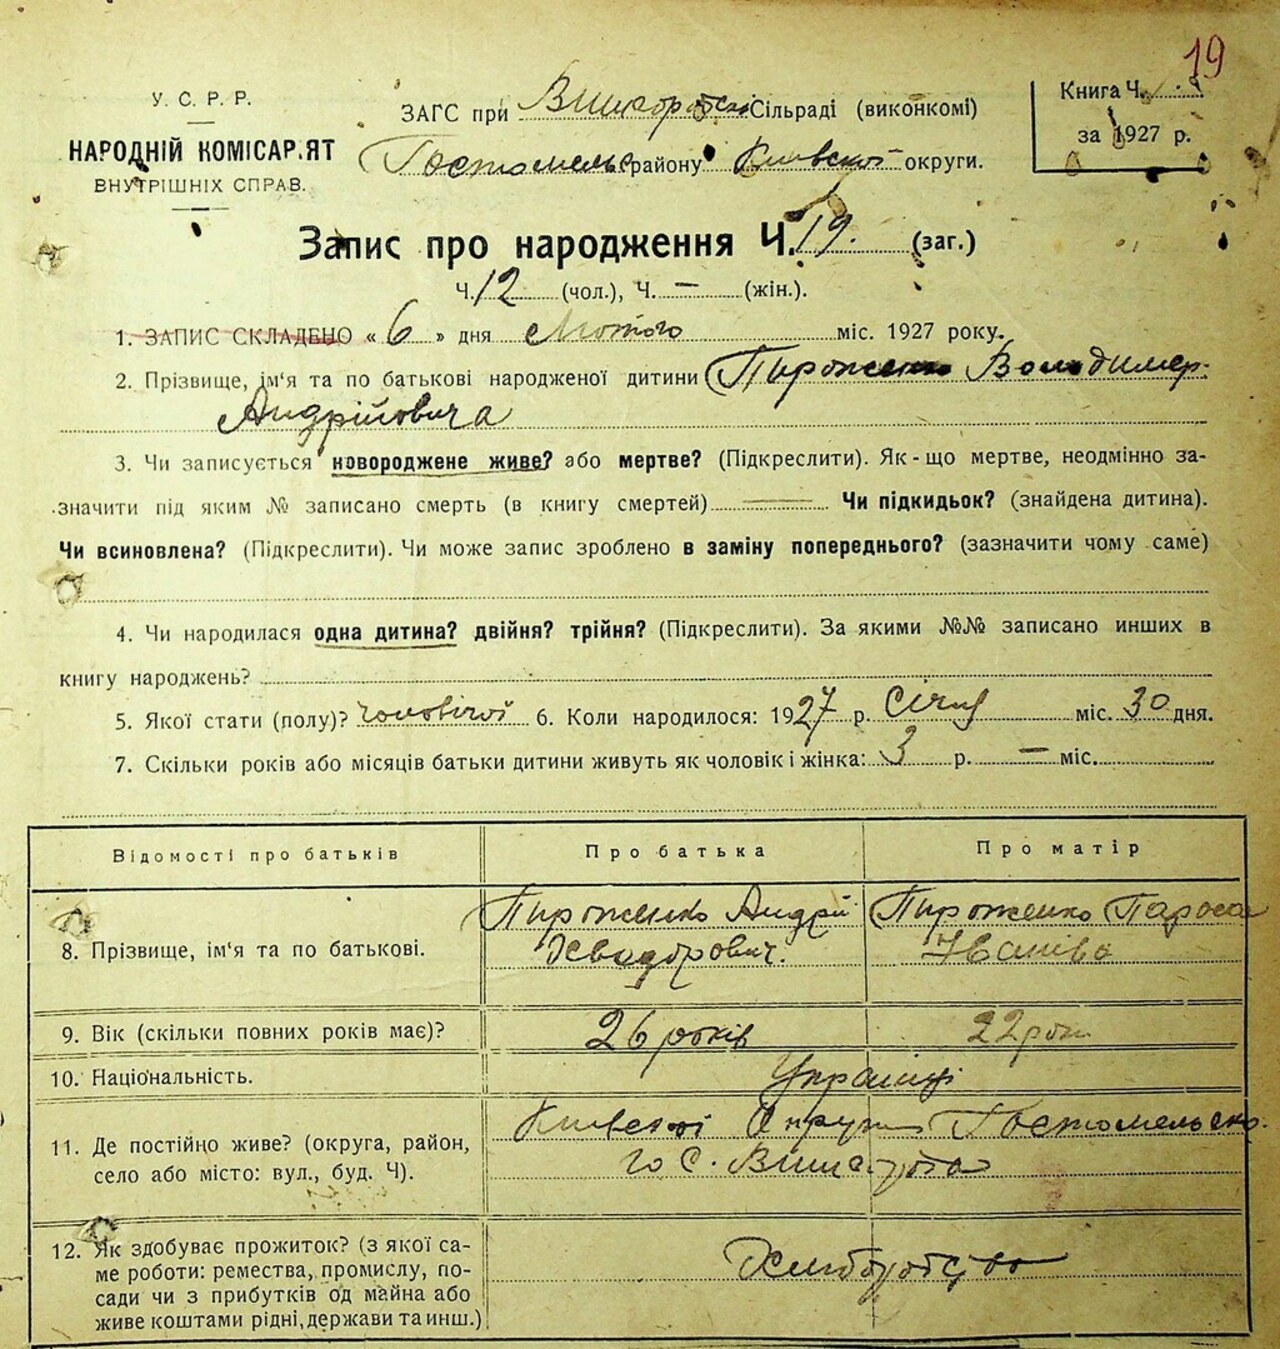 19
У. С. Р. Р.
НАРОДНІЙ КОМІСАР.ЯТ
ВНУТРІШНІХ СПРАВ.
ЗАГС при Вишгородскі Сільраді (виконкомі)
Гостомельс району Київської округи.
Книга Ч.
за 1927 р.
Запис про народження Ч. 19. (заг.)
Ч. 12 (чол.), Ч. — (жін.).
1. ЗАПИС СКЛАДЕНО « 6 » дня Лютого міс. 1927 року.
2. Прізвище, ім'я та по батькові народженої дитини Пироженко Володимер
Андрійовича
3. Чи записується новороджене живе? або мертве? (Підкреслити). Як-що мертве, неодмінно за-
значити під яким № записано смерть (в книгу смертей) Чи підкидьок? (знайдена дитина).
Чи всиновлена? (Підкреслити). Чи може запис зроблено в заміну попереднього? (зазначити чому саме)
4. Чи народилася одна дитина? двійня? трійня? (Підкреслити). За якими №№ записано инших в
книгу народжень?
5. Якої стати (полу)? чоловічої 6. Коли народилося: 1927 р. Січня міс. 30 дня.
7. Скільки років або місяців батьки дитини живуть як чоловік і жінка: 3 р. — міс.
Відомості про батьків
Про батька
Про матір
8. Прізвище, ім'я та по батькові.
Пироженко Андрій
Пироженко Параска
Іванівна
9. Вік (скільки повних років має)?
26 років
22 рок
10. Національність.
Українці
11. Де постійно живе? (округа, район,
село або місто: вул., буд. Ч).
Київської Округи Гостомельско-
го С. Вишгорода
12. Як здобуває прожиток? (з якої са-
ме роботи: ремества, промислу, по-
сади чи з прибутків од майна або
живе коштами рідні, держави та инш.)
Хліборобство